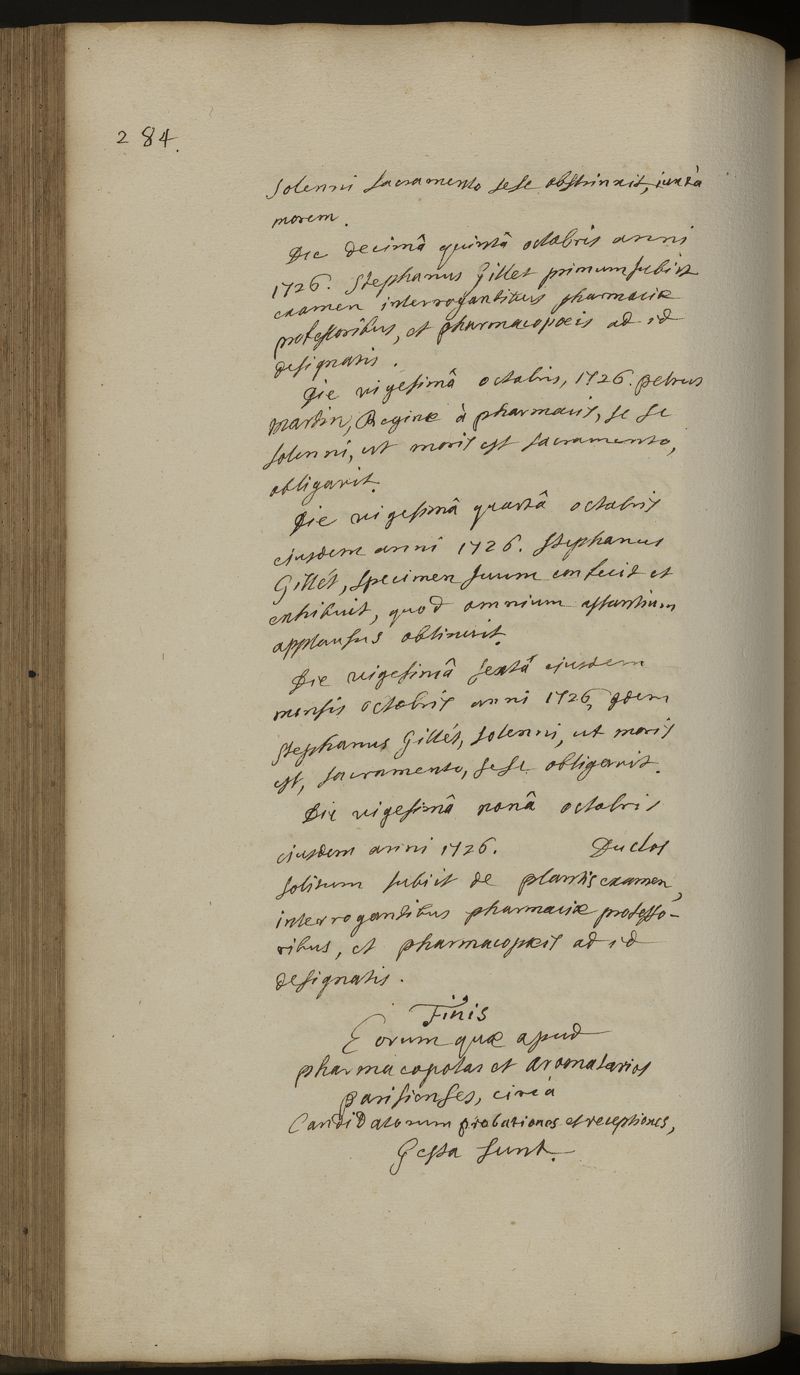 284.
solenni sacramento sese obstrinxit, iuxtà
morem.
Die decimâ quintâ octobris anni
1726. Stephanus Gillet primum subiit
examen interrogantibus pharmaciæ
professoribus, et pharmacopoeis ad id
designatis.
Die vigesimâ octobris, 1726. petrus
Martin, Reginæ à pharmaciis, se se
solenni, ut moris est sacramento,
obligavit.
Die vigesimâ quartâ octobris
eiusdem anni 1726. Stephanus
Gillét, specimen suum confecit et
exhibuit, quod omnium astantium
applausus obtinuit.
Die vigesimâ sextâ ejusdem
mensis octobris anni 1726, idem
Stephanus Gillét, solenni, ut moris
est, sacramento, sese obligavit.
Die vigesimâ nonâ octobris
ejusdem anni 1726. Duclos
solitum subiit de plantis examen,
interrogantibus pharmaciæ professo-
ribus, et pharmacopæis ad id
designatis.
Finis
Eorum quæ apud
pharmacopolas et aromatarios
parisienses, circà
Candidatorum probationes et receptiones,
Gesta sunt.